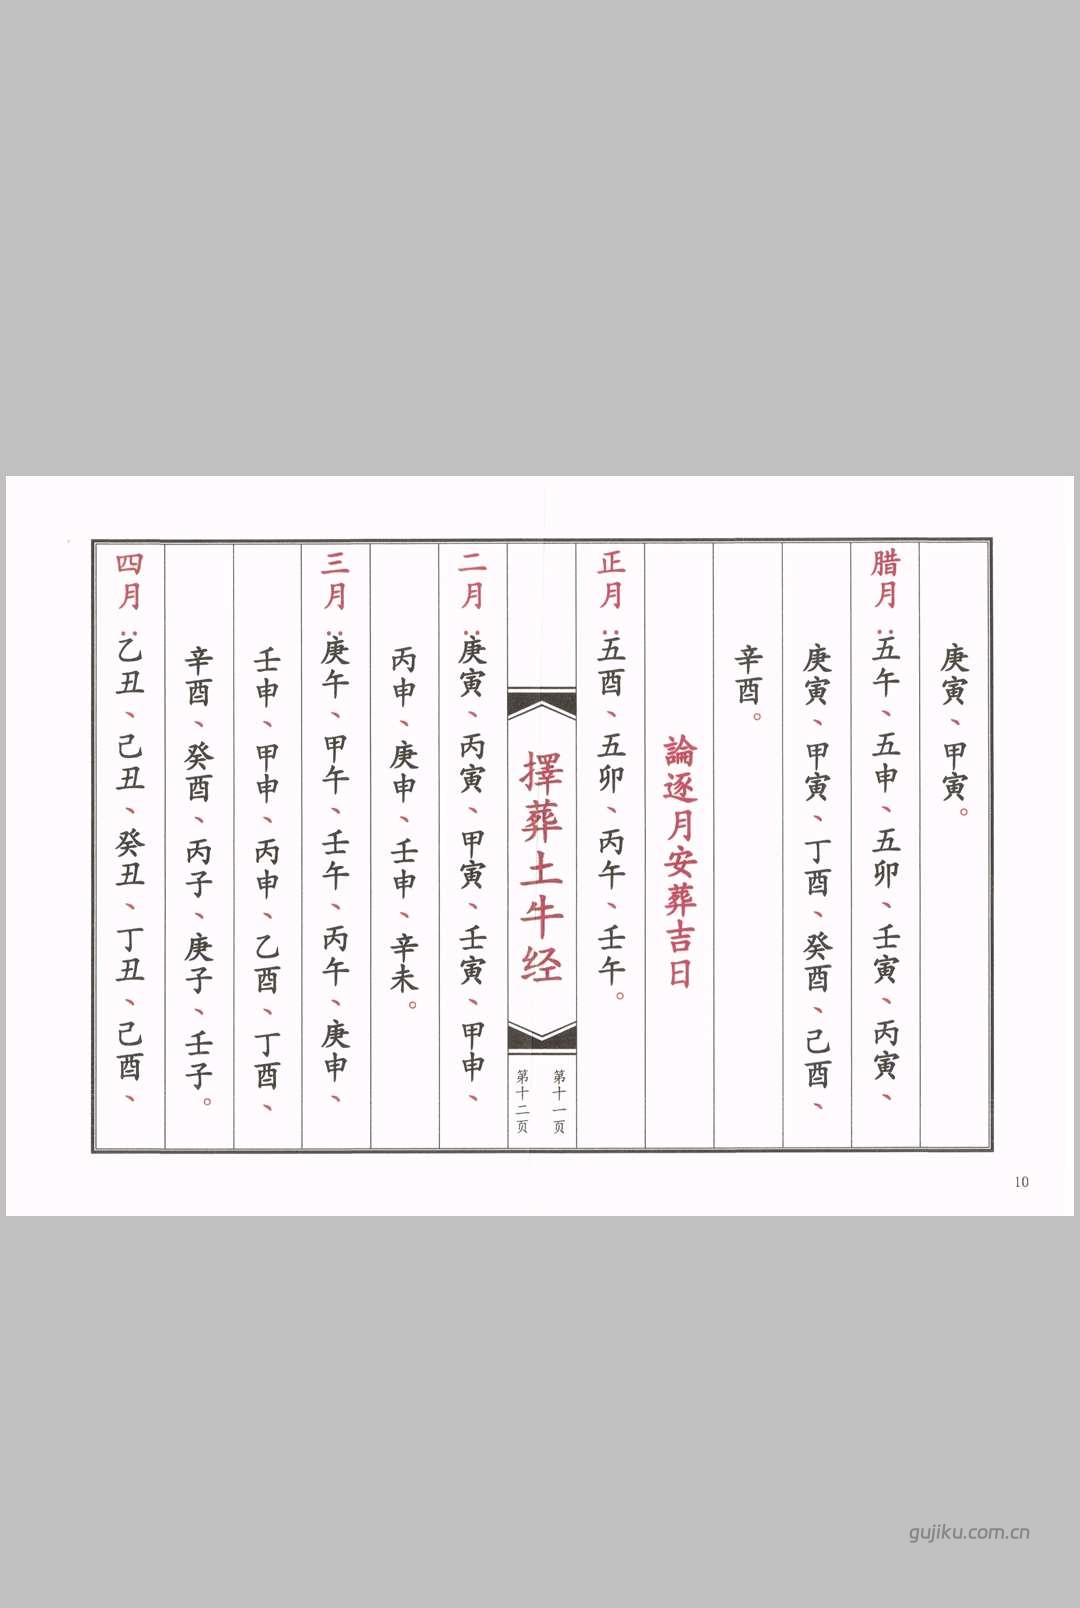 庚寅、甲寅。
腊月：五午、五申、五卯、壬寅、丙寅、
庚寅、甲寅、丁酉、癸酉、己酉、
辛酉。
論逐月安葬吉日
正月：五酉、五卯、丙午、壬午。
擇葬土牛经
第十一页
第十二页
二月：庚寅、丙寅、甲寅、壬寅、甲申、
丙申、庚申、壬申、辛未。
三月：庚午、甲午、壬午、丙午、庚申、
壬申、甲申、丙申、乙酉、丁酉、
辛酉、癸酉、丙子、庚子、壬子。
四月：乙丑、己丑、癸丑、丁丑、己酉、
10
gujiku.com.cn